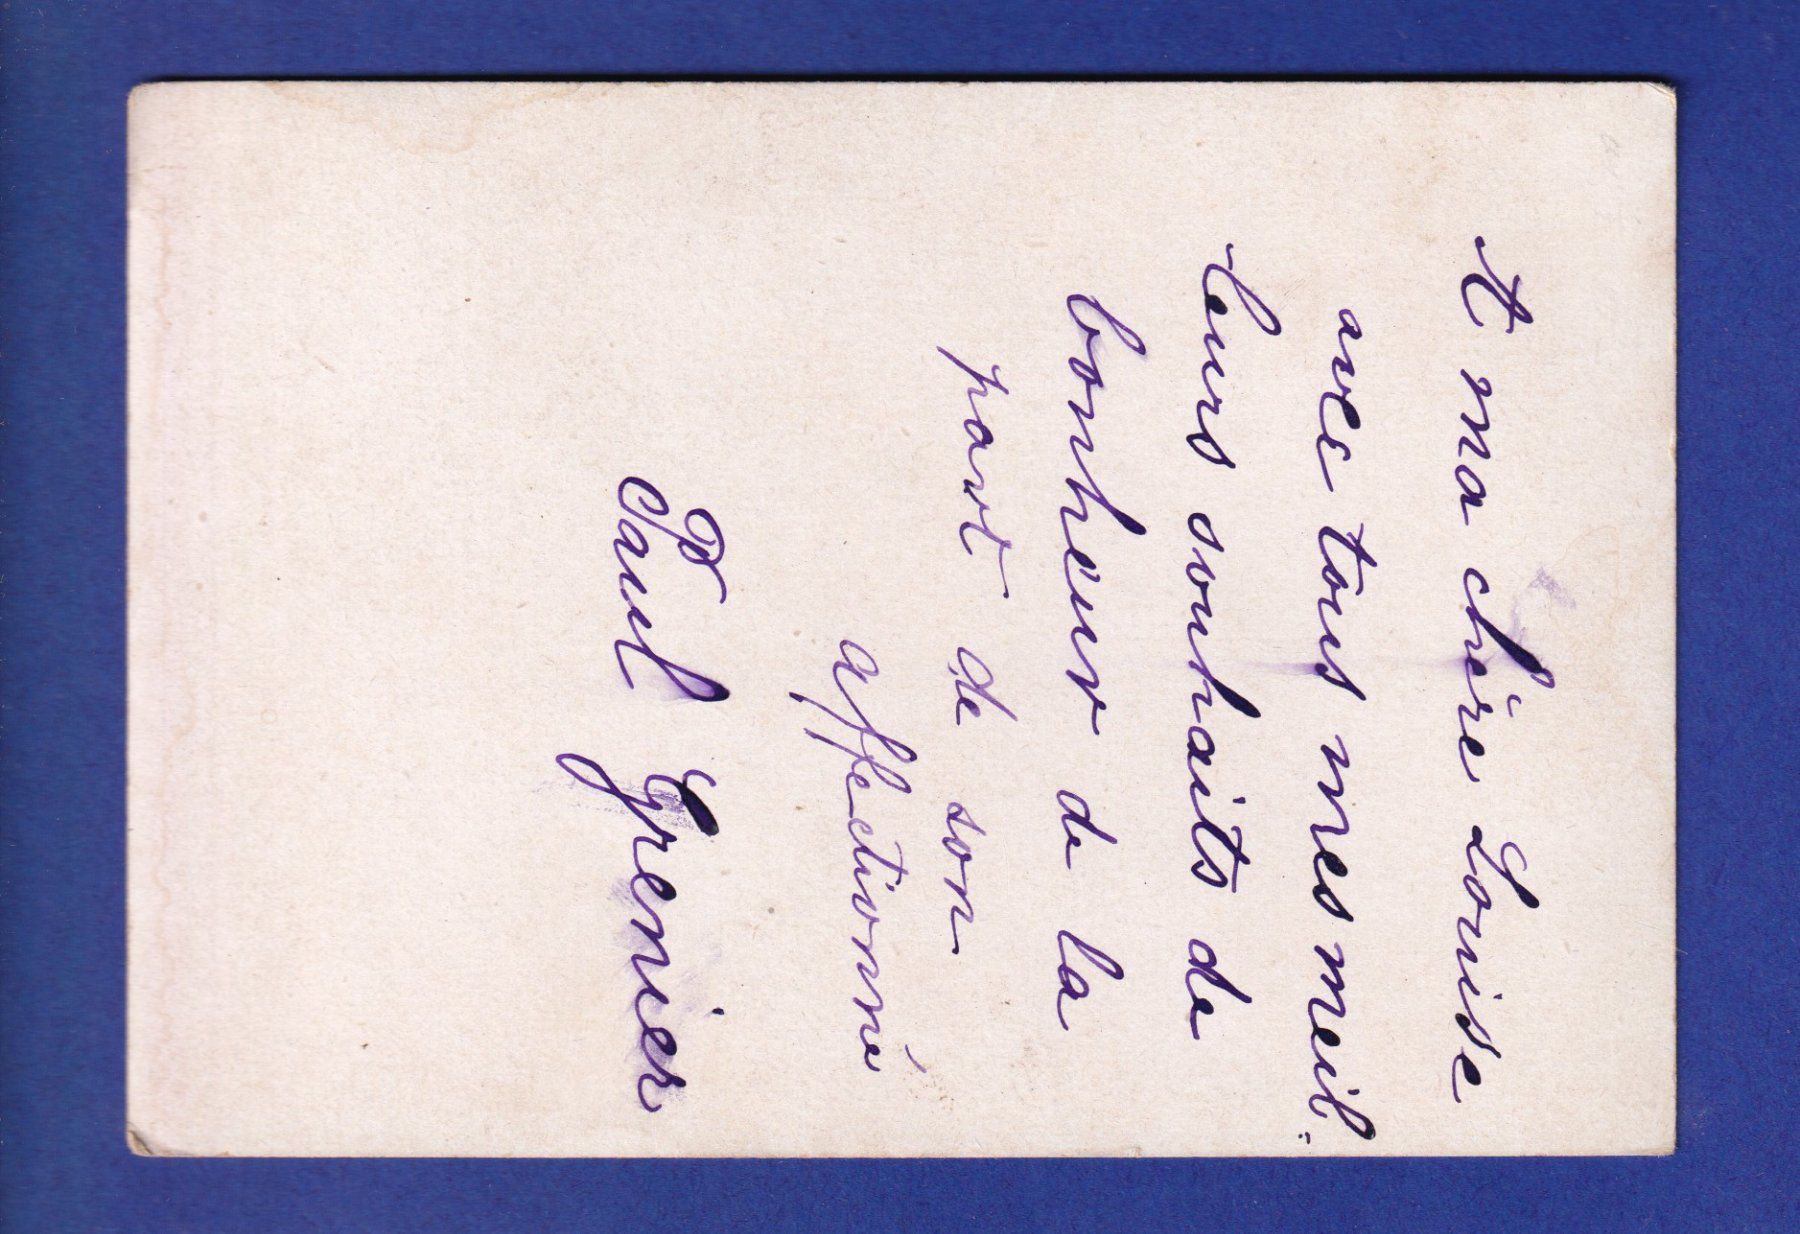 A ma chère Louise
avec tous mes meil-
leurs souhaits de
bonheur de la
part de son
affectionné
Paul Grenier